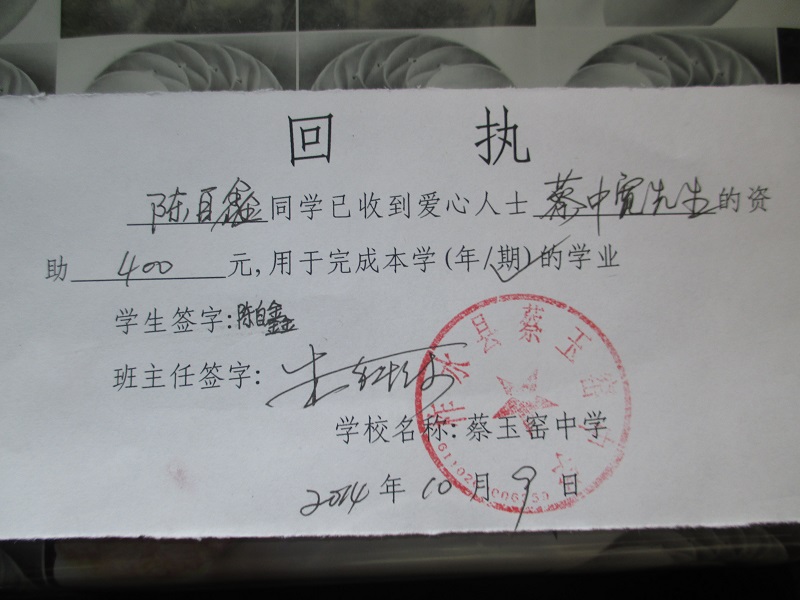 回 执
陈自鑫同学已收到爱心人士蔡中宽先生的资
助 400 元,用于完成本学(年/期)的学业
学生签字:陈自鑫
班主任签字:
学校名称:蔡玉窑中学
2014 年 10 月 9 日
柞水县蔡玉窑中学